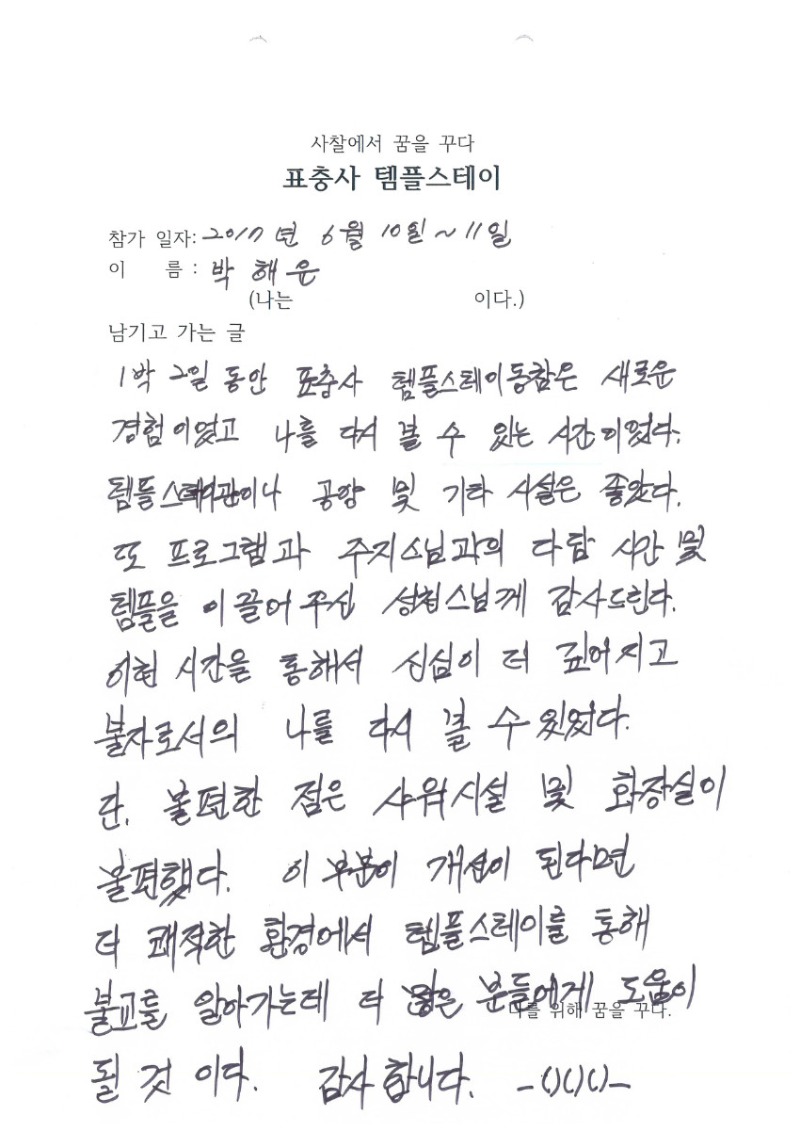 사찰에서 꿈을 꾸다
표충사 템플스테이
참가 일자: 2017년 6월 10일 ~ 11일
이 름 : 박해운
(나는 이다.)
남기고 가는 글
1박 2일 동안 표충사 템플스테이동참은 새로운
경험이었고 나를 다시 볼 수 있는 시간이었다.
템플스테이관이나 공양 및 기타 시설은 좋았다.
또 프로그램과 주지스님과의 다담 시간 및
템플을 이끌어 주신 스님께 감사드린다.
이런 시간을 통해서 신심이 더 깊어지고
불자로서의 나를 다시 볼 수 있었다.
단, 불편한 점은 샤워시설 및 화장실이
불편했다. 이 부분이 개선이 된다면
더 쾌적한 환경에서 템플스테이를 통해
불교를 알아가는데 더 많은 분들에게 도움이
를 위해 꿈을 꾸다.
될 것 이다. 감사합니다. -()()()-